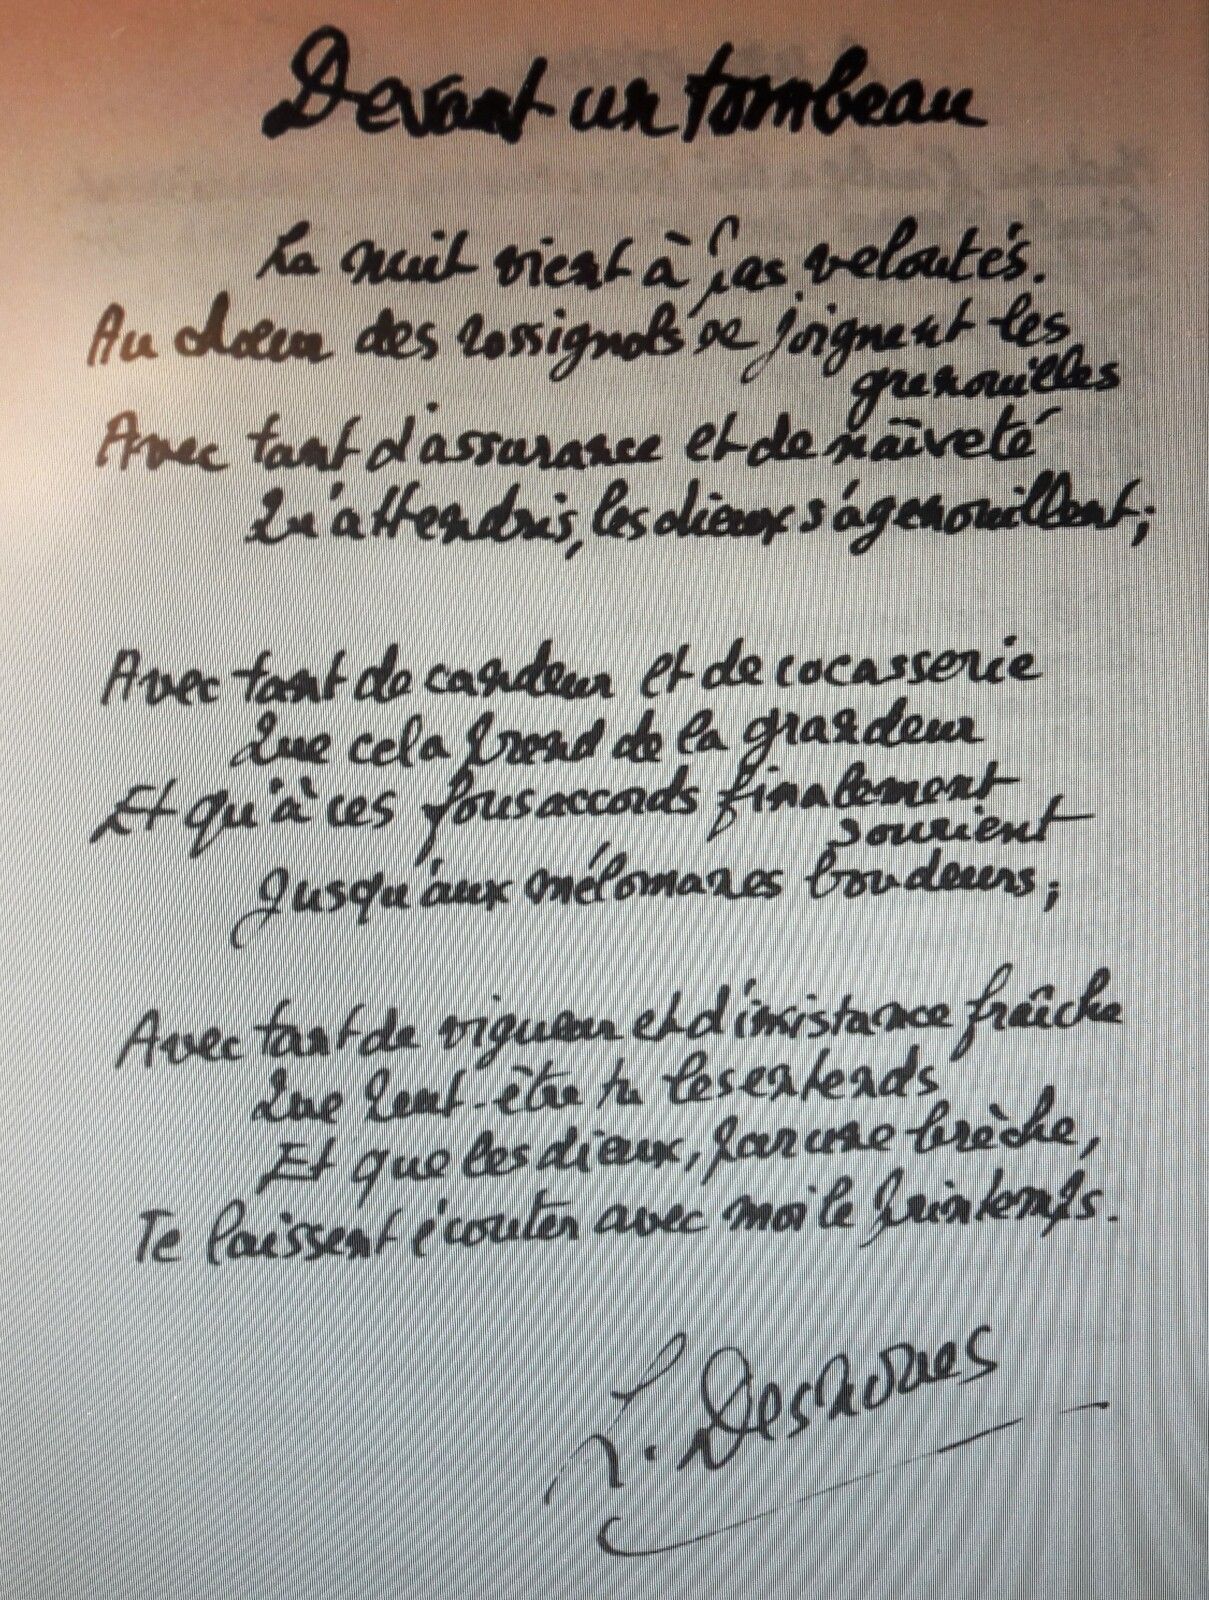 Devant un tombeau
La nuit vient à pas veloutés.
Au chœur des rossignols se joignent les
grenouilles
Avec tant d'assurance et de naïveté
Qu'attendris, les dieux s'agenouillent;
Avec tant de candeur et de cocasserie
Que cela prend de la grandeur
Et qu'à ces fous accords finalement
sourient
Jusqu'aux mélomanes boudeurs;
Avec tant de vigueur et d'insistance fraîche
Que peut-être tu les entends
Et que les dieux, par une brèche,
Te laissent écouter avec moi le printemps.